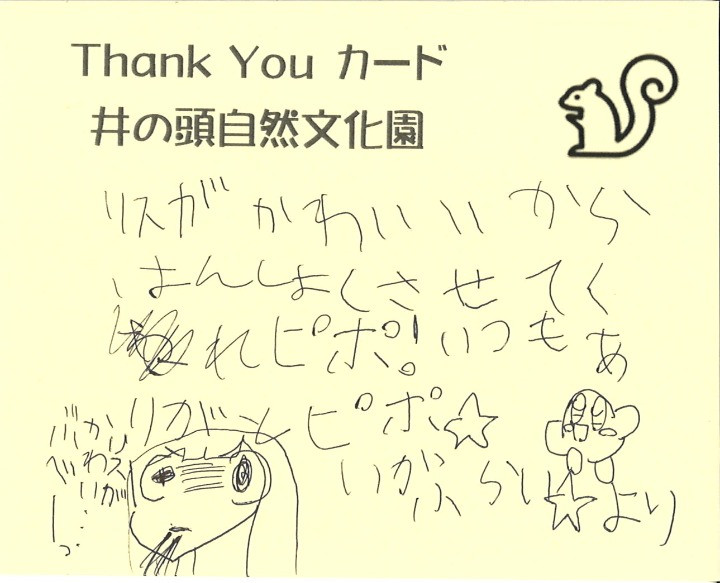 Thank You カード
井の頭自然文化園
リスガかわいいから
はんしょくさせてく
れピポ!いつもあ
りがとピポ☆
いがふらい☆より
リスが
かわいい